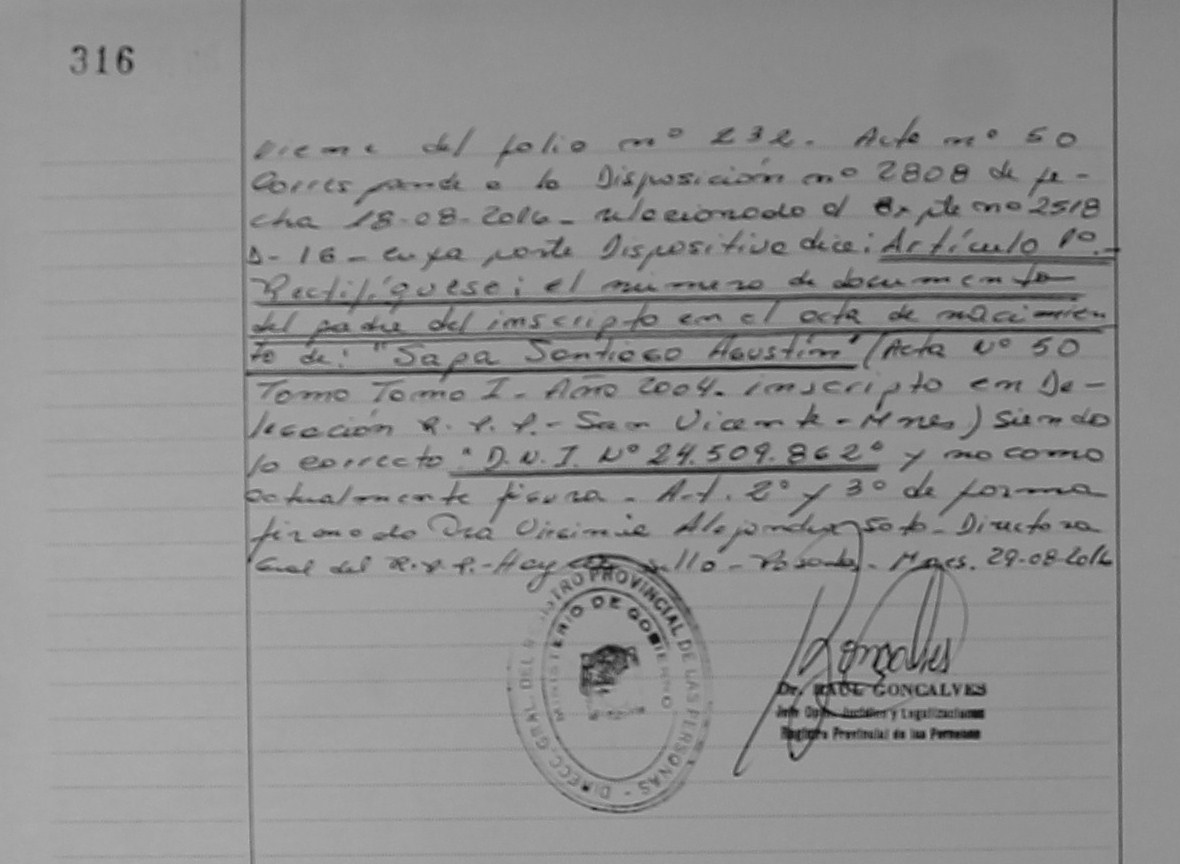 316
Viene del folio nº 232. Acta nº 50
Corresponde a la Disposición nº 2808 de fe-
cha 18-08-2016- relacionado al Expte nº 2518
D-16- cuya parte Dispositiva dice: Artículo 1º.
Rectifíquese: el número de documento
del padre del inscripto en el acta de nacimien
to de: "Sapa Santiago Agustín" (Acta Nº 50
Tomo Tomo I - Año 2004. inscripto en De-
legación R.P.P.- San Vicente - Mnes) siendo
lo correcto "D.N.I. Nº 24.509.862" y no como
actualmente figura - Art. 2º y 3º de forma
firmado Dra Virginia Alejandra Soto - Directora
Gral del R.P.P.- Hay sello - Posadas - Mnes. 29-08-2016
DIRECC. GRAL. DEL REGISTRO PROVINCIAL DE LAS PERSONAS
MINISTERIO DE GOBIERNO
Gonçalves
Dr. RAUL GONCALVES
Jefe Jurídica y Legalizaciones
Registro Provincial de las Personas